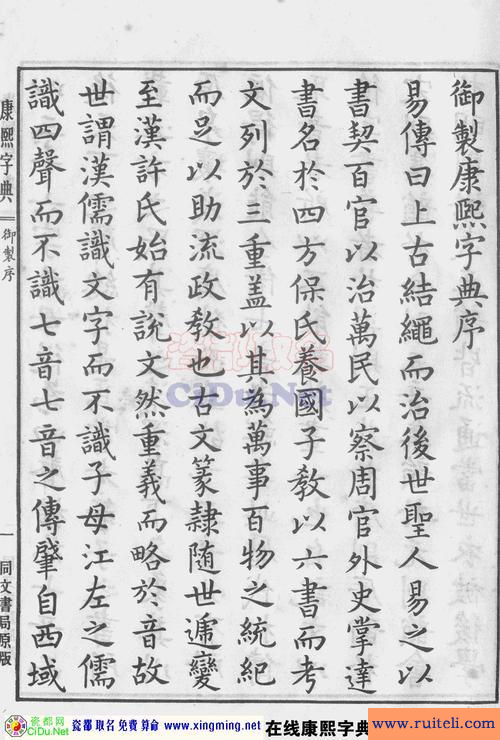 御製康熙字典序
易傳曰上古結繩而治後世聖人易之以
書契百官以治萬民以察周官外史掌達
書名於四方保氏養國子教以六書而考
文列於三重蓋以其為萬事百物之統紀
而足以助流政教也古文篆隸隨世遞變
至漢許氏始有說文然重義而略於音故
世謂漢儒識文字而不識子母江左之儒
識四聲而不識七音七音之傳肇自西域
康熙字典
御製序
一
同文書局原版
瓷都取名
CiDu.Net
瓷都网
CiDu.Net
瓷都 取名 免费 算命 www.xingming.net 在线康熙字典
www.ruiteli.com